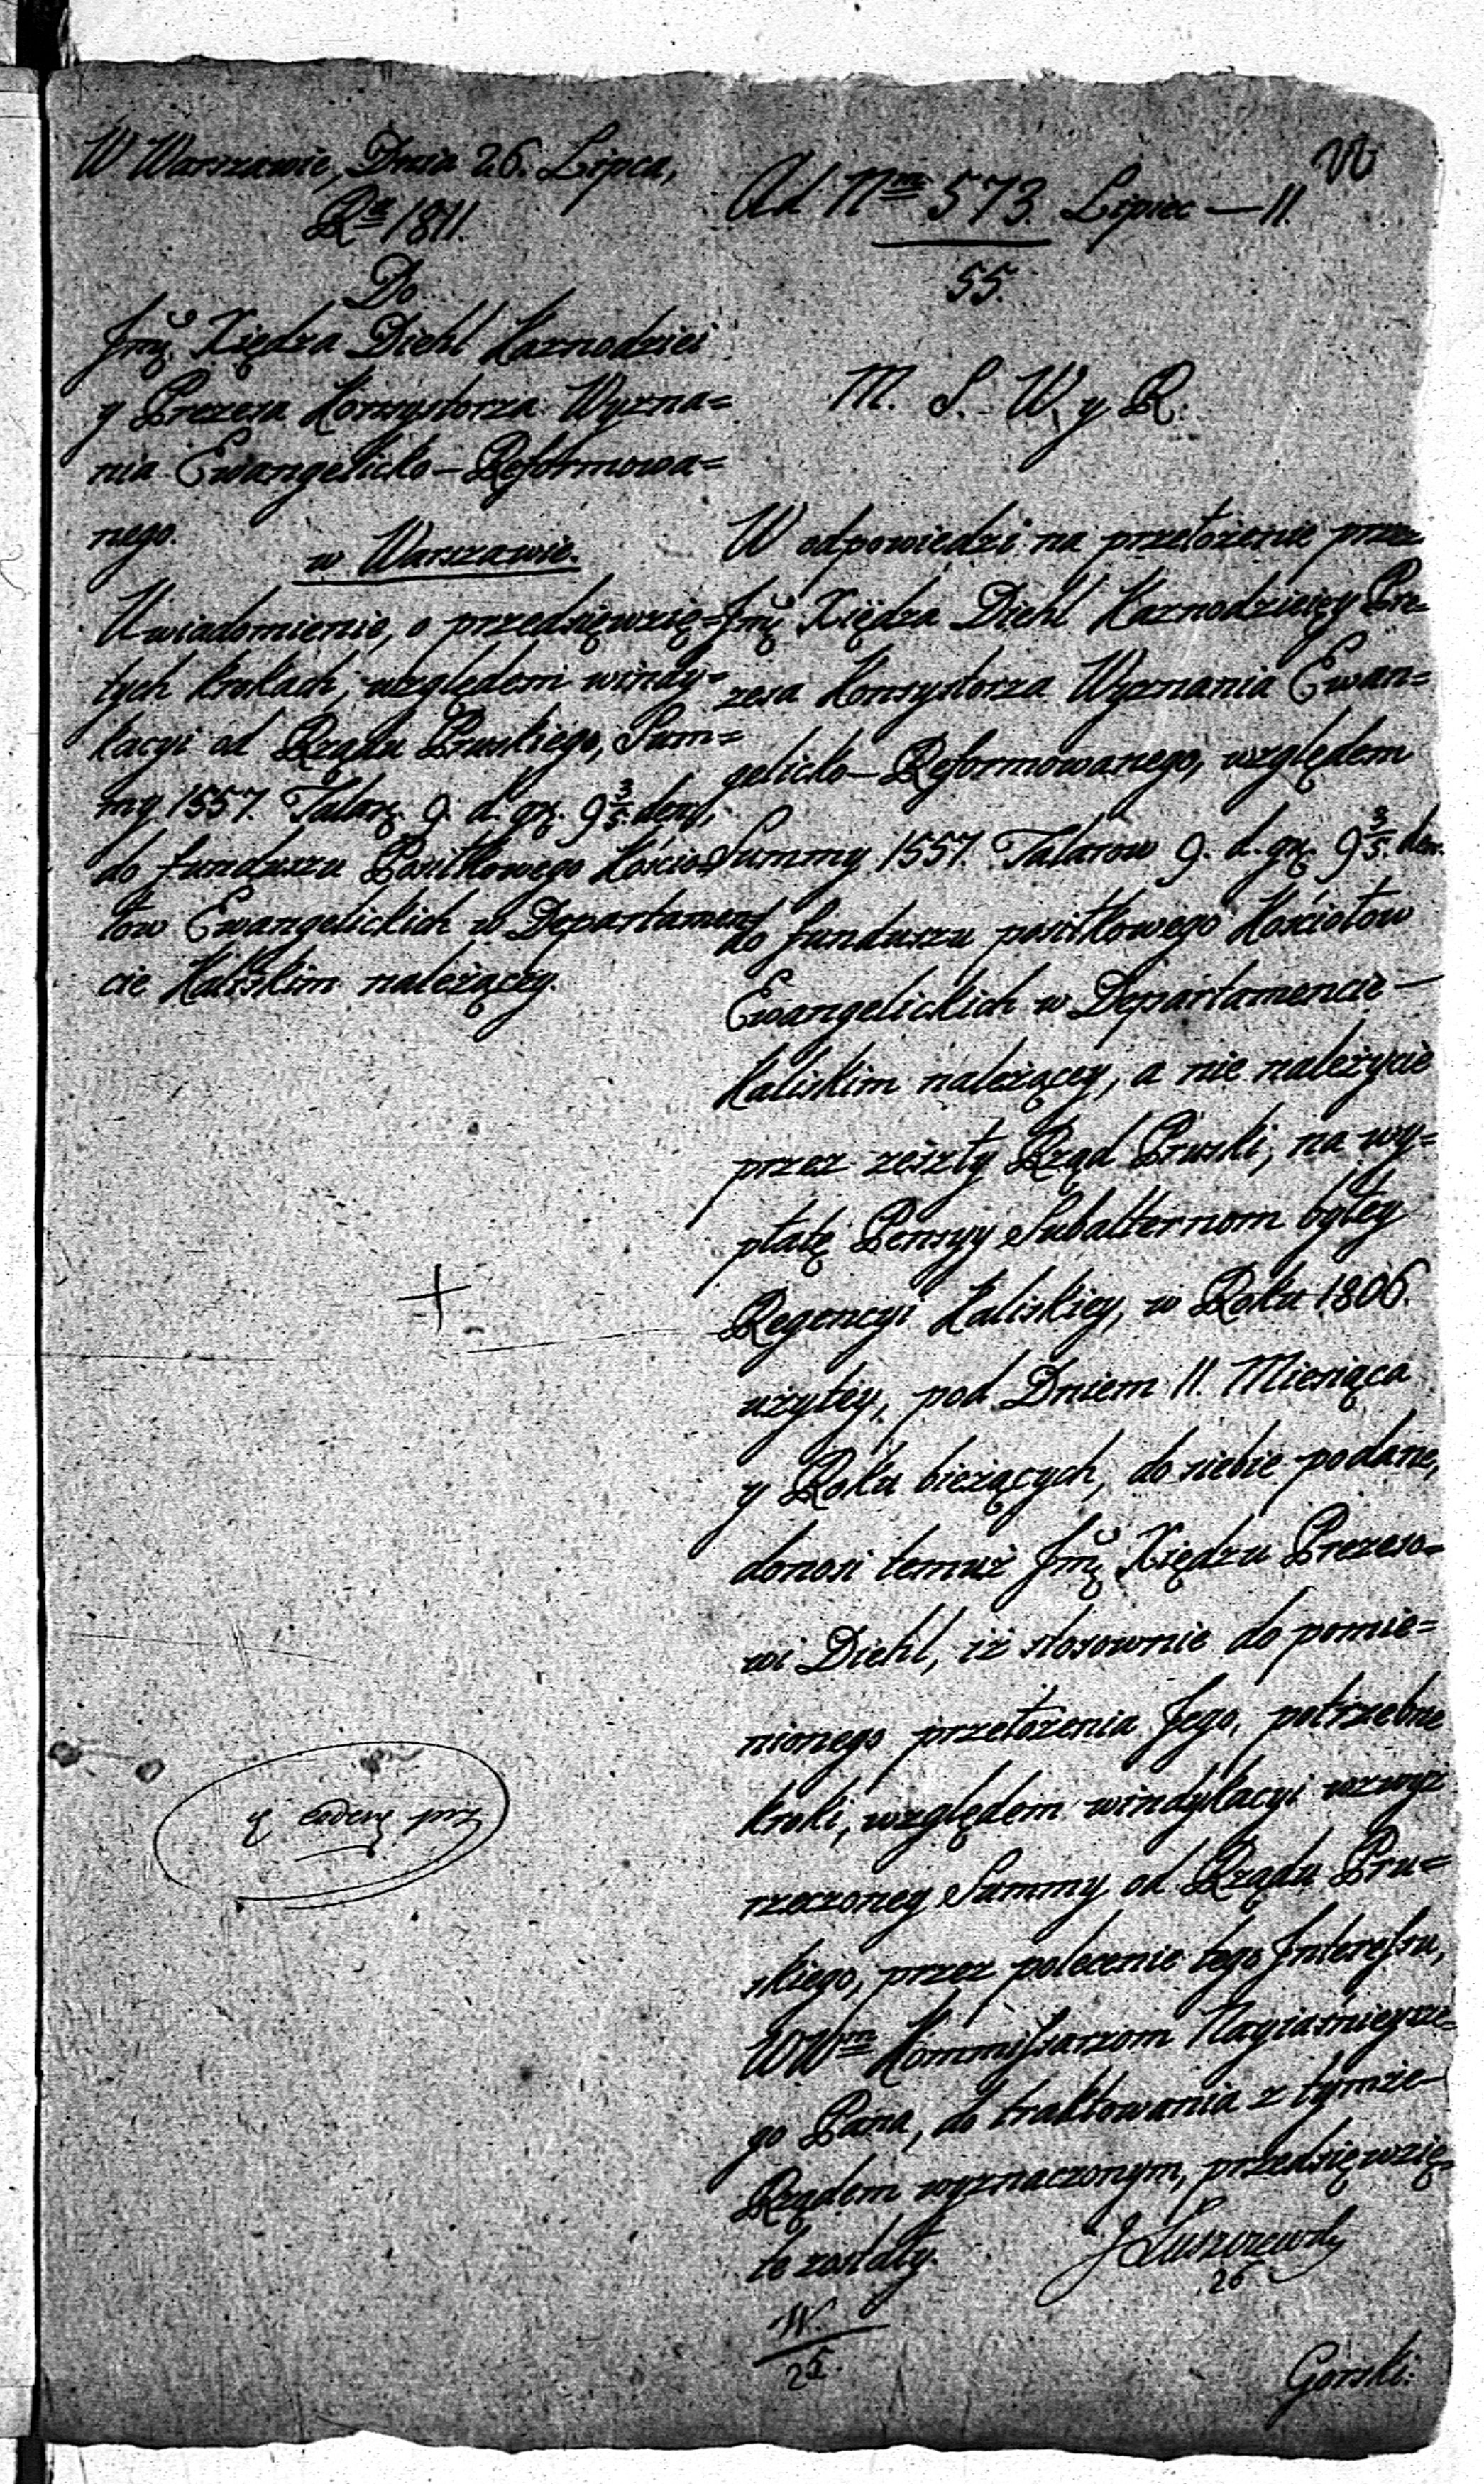 W Warszawie, Dnia 26. Lipca,
Rꝰ 1811.
Do
Jmć Xiędza Diehl Kaznodziei
y Prezesa Konsystorza Wyzna=
nia Ewangelicko-Reformowa=
nego.
w Warszawie.
Uwiadomienie, o przedsięwzię=
tych krokach, względem windy=
kacyi od Rządu Pruskiego, Sum=
my 1557. Talar. 9. d. gr. 9 3/5. den.,
do funduszu Posiłkowego Kościo=
łow Ewangelickich w Departamen=
cie Kaliskim należącey.
Ad Nm 573. Lipiec — 11.
55.
M. S. W. y R.
W odpowiedzi na przełożenie przez
Jmć Xiędza Diehl Kaznodzieię y Pre=
zesa Konsystorza Wyznania Ewan=
gelicko-Reformowanego, względem
Summy 1557. Talarow 9. d. gr. 9 3/5. den.
do funduszu posiłkowego Kościołow
Ewangelickich w Departamencie —
Kaliskim należącey, a nie należycie
przez zeszły Rząd Pruski, na wy=
płatę Pensyy Subalternom byłey
Regencyi Kaliskiey, w Roku 1806.
użytey, pod Dniem 11. Miesiąca
y Roku bieżących, do siebie podane,
donosi temuż Jmć Xiędzu Prezeso=
wi Diehl, iż stosownie do pomie=
nionego przełożenia Jego, potrzebne
kroki, względem windykacyi wzwyż
rzeczoney Summy od Rządu Pru=
skiego, przez polecenie tego Interessu,
WWm Kommissarzom Nayiaśnieysze=
go Pana, do traktowania z tymże —
Rządem wyznaczonym, przedsięwzię=
te zostały.
J Łuszczewski
26
W.
25.
Gorski.